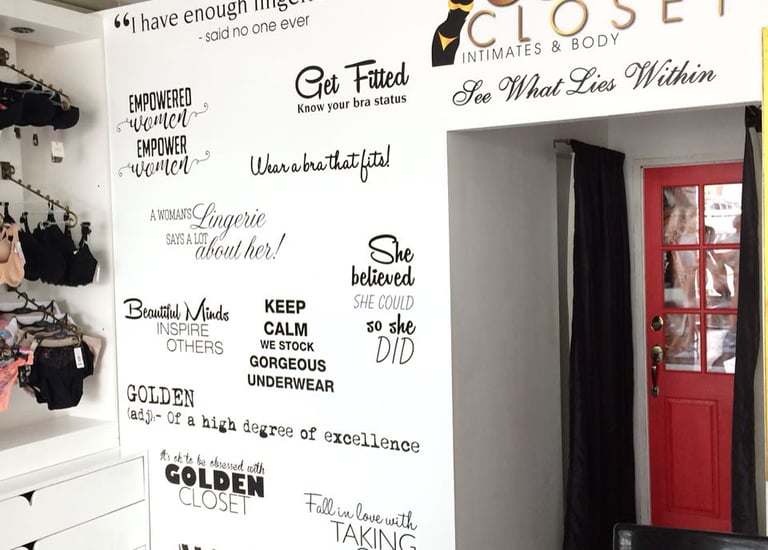 “I have enough
- said no one ever
CLOSET
INTIMATES & BODY
See What Lies Within
Get Fitted
Know your bra status
EMPOWERED
women
EMPOWER
women
Wear a bra that fits!
A WOMAN'S Lingerie
SAYS A LOT
about her!
She
believed
SHE COULD
so she
DID
Beautiful Minds
INSPIRE
OTHERS
KEEP
CALM
WE STOCK
GORGEOUS
UNDERWEAR
GOLDEN
(adj):- Of a high degree of excellence
It's ok to be obsessed with
GOLDEN
CLOSET
Fall in love with
TAKING